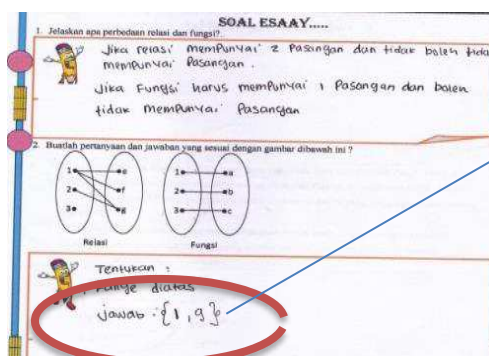 SOAL ESAAY.....
1. Jelaskan apa perbedaan relasi dan fungsi?.
Jika relasi mempunyai 2 Pasangan dan tidak boleh tida
mempunyai Pasangan.
Jika Fungsi harus mempunyai 1 Pasangan dan boleh
tidak mempunyai Pasangan
2. Buatlah pertanyaan dan jawaban yang sesuai dengan gambar dibawah ini ?
1 e 1 a
2 f 2 b
3 g 3 c
Relasi Fungsi
Tentukan :
Range diatas
jawab : {1, 9}